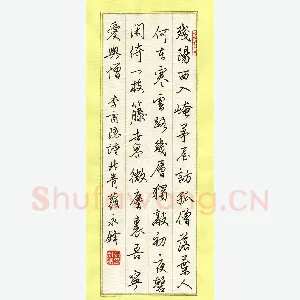 殘陽西入崦茅屋訪孤僧落葉人
何在寒雲路幾層獨敲初夜磬
閑倚一枝籐世界微塵裏吾寧
愛與憎 李商隱詩北青蘿永
Shufawang.CN